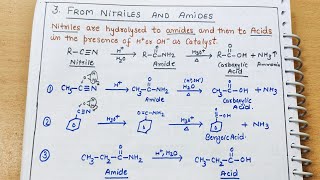 3. FROM NITRILES AND AMIDES
Nitriles are hydrolysed to amides and then to Acids
in the presence of H⁺ or OH⁻ as Catalyst.
R–C≡N H⁺ H₂O R–C–NH₂ H₃O⁺ Δ R–C–OH + NH₃↑
Nitrile Amide Carboxylic Acid Ammonia
① CH₃–C≡N H⁺ H₃O⁺ CH₃–C–NH₂ CH₃–C–OH + NH₃
Amide Carboxylic Acid.
② C≡N H₃O⁺ H₃O⁺ Δ + NH₃
Benzoic Acid
③ CH₃–CH₂–C–NH₂ H⁺, H₂O Δ CH₃–CH₂–C–OH + NH₃
Amide Acid